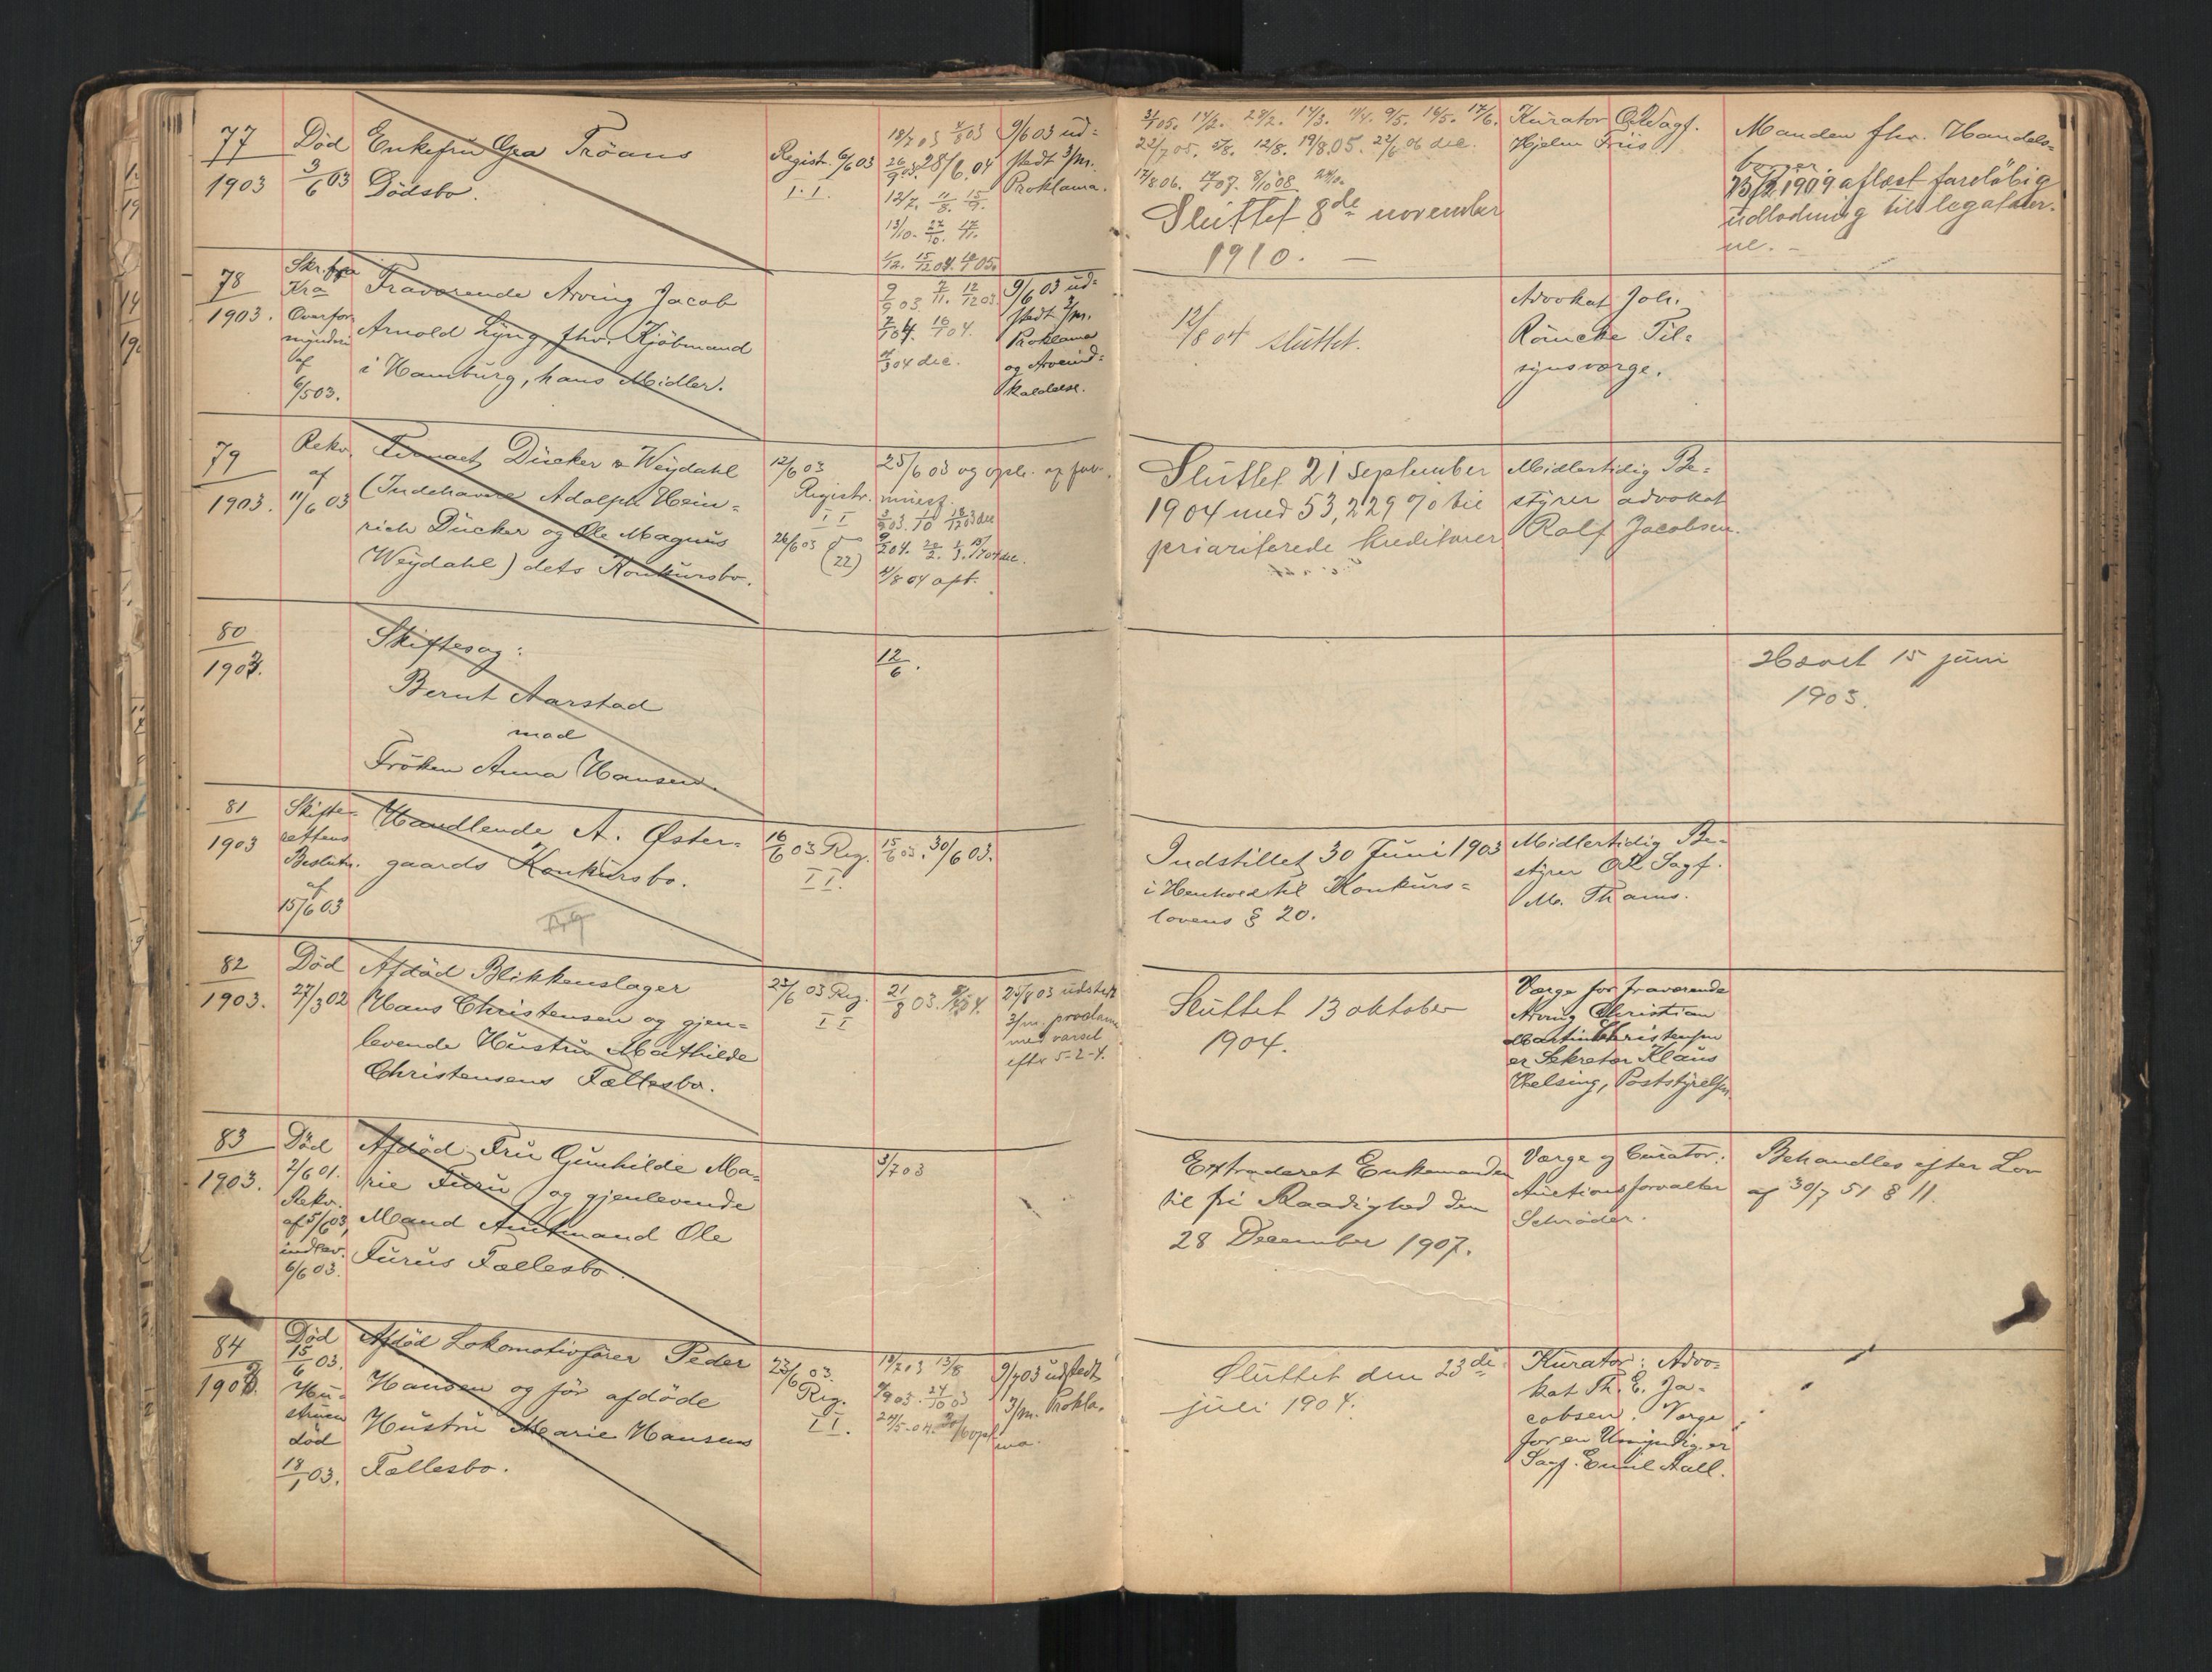 77
1903
Död
3/6 03
Enkefru Gea Tröans
Dödsbo.
Registr. 6/6 03
I. I.
18/7 03 4/8 03
26/9 03. 28/6.04
12/7. 11/8. 15/9.
13/10. 27/10. 17/11.
1/12. 15/12 04. 19/1 05.
9/6 03 ud=
stedt 3/m.
Proklama.
22/7 05. 5/8. 12/8. 19/8.05. 22/6 06 dec.
Sluttet 8de november
1910. —
Kurator O.R.Sagf.
Hjelm Friis
Manden fhv. Handels=
borger.
13/2 1909 aflæst foreløbig
udlodning till legatarer.
ne. -
78
1903.
Skr. fra
Kra
Overfor=
mynderi
af
6/5 03.
Fraværende Arving Jacob
Arnold Lyng, fhv. Kjöbmand
i Hamburg, hans Midler.
9/9 03 7/11. 12/12 03.
9/6 03 ud=
stedt 3/m.
Proklama
og Arveind=
kaldelse.
12/8 04 sluttet.
Advokat Joh.
Röncke Til=
synsværge.
79
1903.
Rekv.
af
11/6 03
Firmaet Dücker & Weydahl
(Indehavere Adolph Hein=
rich Dücker og Ole Magnus
Weydahl) dets Konkursbo.
12/6 03
Registr.
I I
26/6 03
(22)
25/6 03 og
11/8 04 aft.
Sluttet 21 september
1904 med 53,229 % til
prioriterede kreditorer
Midlertidig Be=
styrer advokat
Rolf Jacobsen.
80
1903.
Skiftesag:
Bernt Aarstad
mod
Fröken Anna Hansen.
12/6.
Hævet 15 juni
1903.
81
1903
Skifte=
rettens
Beslutn.
af
15/6 03
Handlende A. Øster=
gaards Konkursbo.
16/6 03 Reg.
I I.
15/6 03. 30/6 03.
Indstillet 30 Juni 1903
i Henhold til Konkurs=
lovens § 20.
Midlertidig Be=
styrer OR Sagf.
M. Thams.
82
1903.
Död
27/3 02
Afdöd Blikkenslager
Hans Christensen og gjen=
levende Hustru Mathilde
Christensens Fællesbo.
23/6 03 Reg.
I I
21/8 03.
25/8 03 udstedt
3/m. proclama
med varsel
efter 5-2-4.
Sluttet 13 oktober
1904.
Værge for fraværende
Arving Christian
Martin Christensen
er Sekretær Klaus
Helsing, Poststyrelsen
83
1903.
Död
2/6 01.
Rekv.
af 5/6 03,
indlev.
6/6 03.
Afdöd Fru Gunhilde Ma=
rie Furu og gjenlevende
Mand Amtmand Ole
Furus Fællesbo.
3/7 03
Extraderet Enkemanden
til fri Raadighed den
28 December 1907.
Værge og Curator:
Auctionsforvalter
Schröder.
Behandles efter Lov
af 30/7 51 § 11.
84
1903.
Död
15/6 03.
Hu=
struen
död
18/1 03.
Afdöd Lokomotivfører Peder
Hansen og før afdöde
Hustru Marie Hansens
Fællesbo.
23/6 03.
Reg.
I I.
18/7 03 13/8
9/9 03. 24/10 03
9/7 03 udstedt
3/m. Prokla=
ma.
Sluttet den 23de
juli 1904.
Kurator: Advo=
kat Th. E. Ja=
cobsen. Værge
for en Umyndig er
Sagf. Emil Aall.